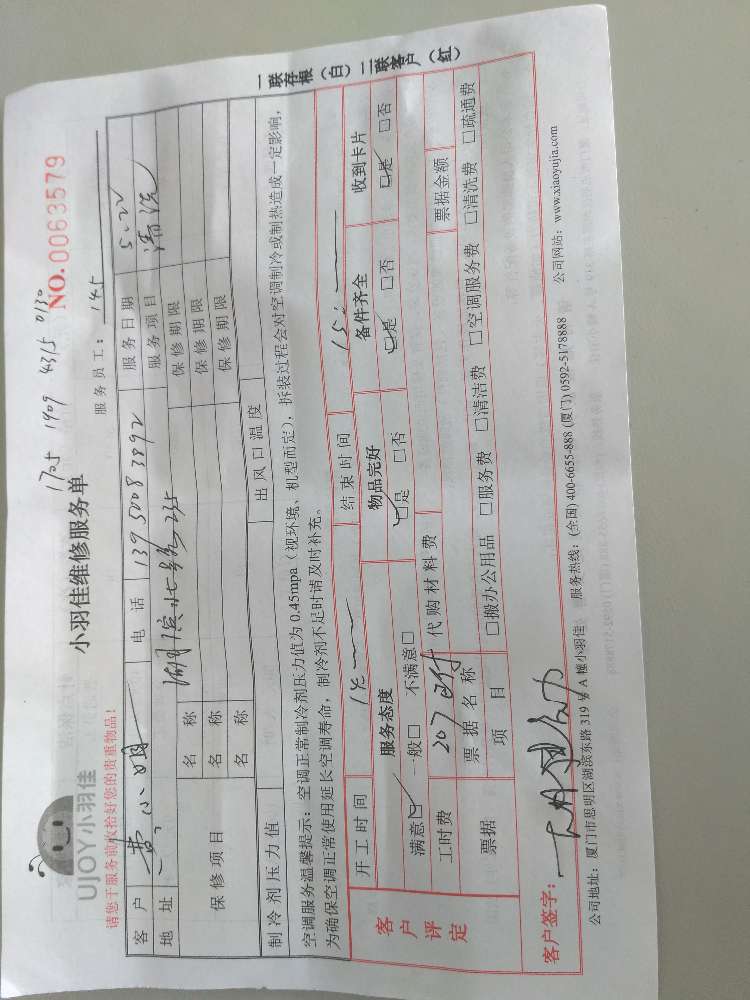 1705 1909 4315 0130
UJOY小羽佳
小羽佳维修服务单
NO.0063579
请您于服务前收拾好您的贵重物品!
服务员工: 145
客户 黄小姐 电话 139 5008 3892 服务日期 5.22
地址 湖滨北路235 服务项目 清洗
保修项目
名称 保修期限
名称 保修期限
名称 保修期限
制冷剂压力值 出风口温度
空调服务温馨提示:空调正常制冷剂压力值为 0.45mpa(视环境、机型而定),拆装过程会对空调制冷或制热造成一定影响,
为确保空调正常使用延长空调寿命,制冷剂不足时请及时补充。
一联存根(白) 二联客户(红)
开工时间 结束时间 15:
客户评定
服务态度 物品完好 备件齐全 收到卡片
满意□ 一般□ 不满意□ □是 □否 □是 □否 □是 □否
工时费 207 已付 代购材料费
票据 票据名称 票据金额
项目 □搬办公用品 □服务费 □清洁费 □空调服务费 □清洗费 □疏通费
客户签字:
公司地址:厦门市思明区湖滨东路 319 号 A 幢小羽佳 服务热线:(全国) 400-6655-888 (厦门) 0592-5178888 公司网站:www.xiaoyujia.com